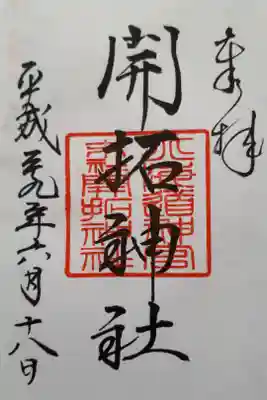 奉拝
開拓神社
平成二十九年六月十八日
北海道神宮
開拓神社